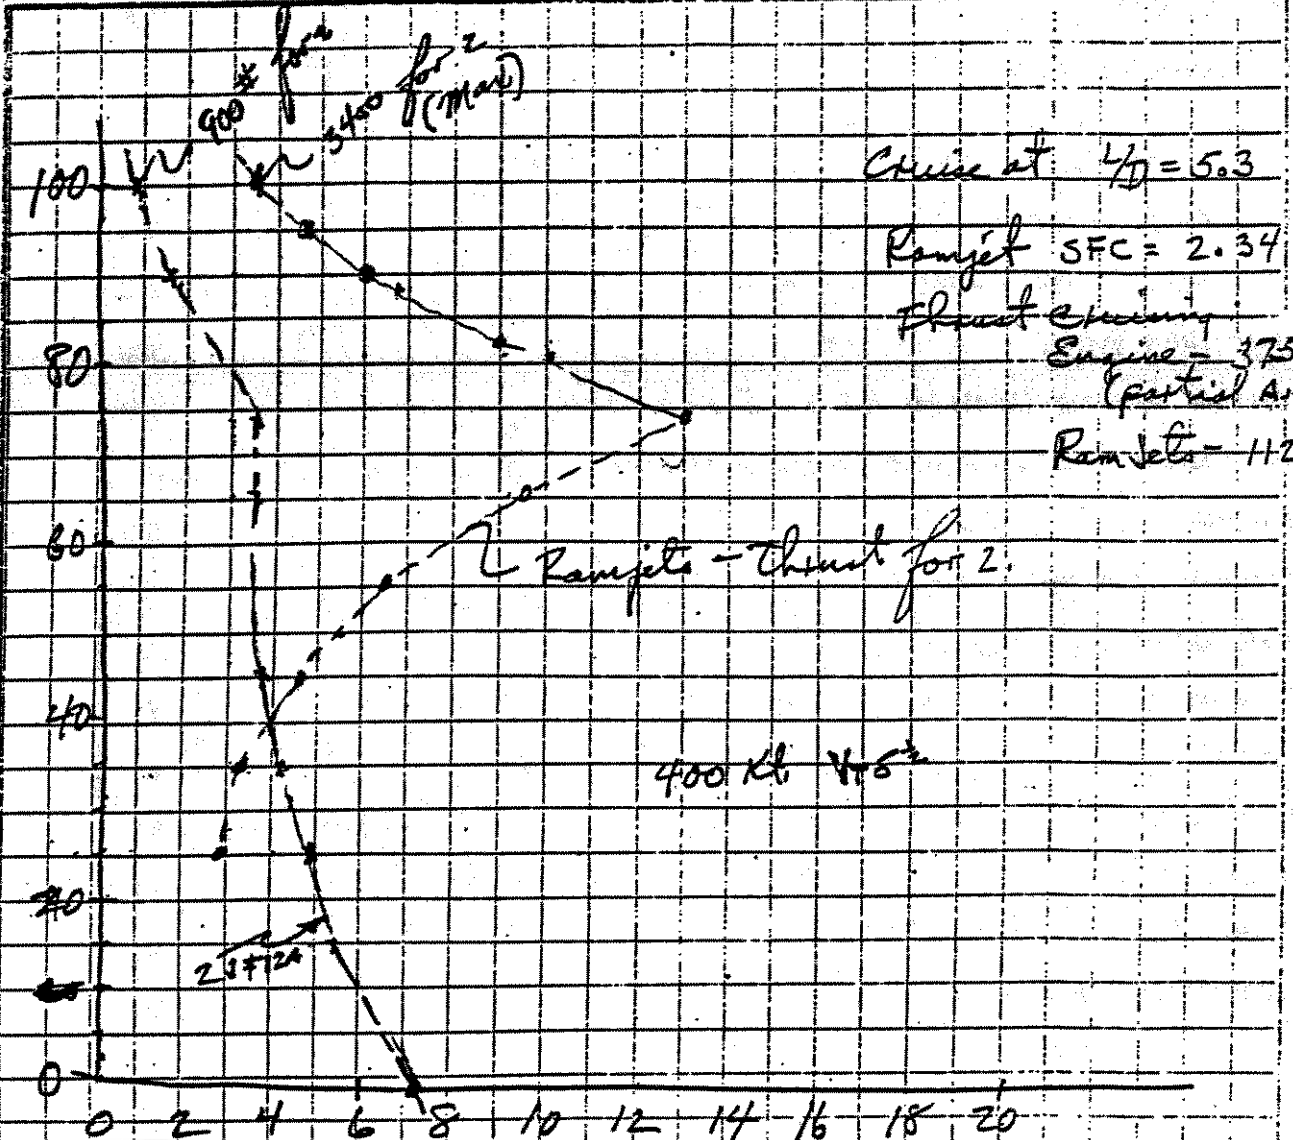 900# for 2
3400 for 2
(Max)
Cruise at L/D = 5.3
Ramjet SFC = 2.34
Thrust Cruising
Engine - 375
(partial A.
Ram Jets - 112
Ramjets - Thrust for 2.
400 Kt.
2 JT12A
100
80
60
40
20
0
0 2 4 6 8 10 12 14 16 18 20